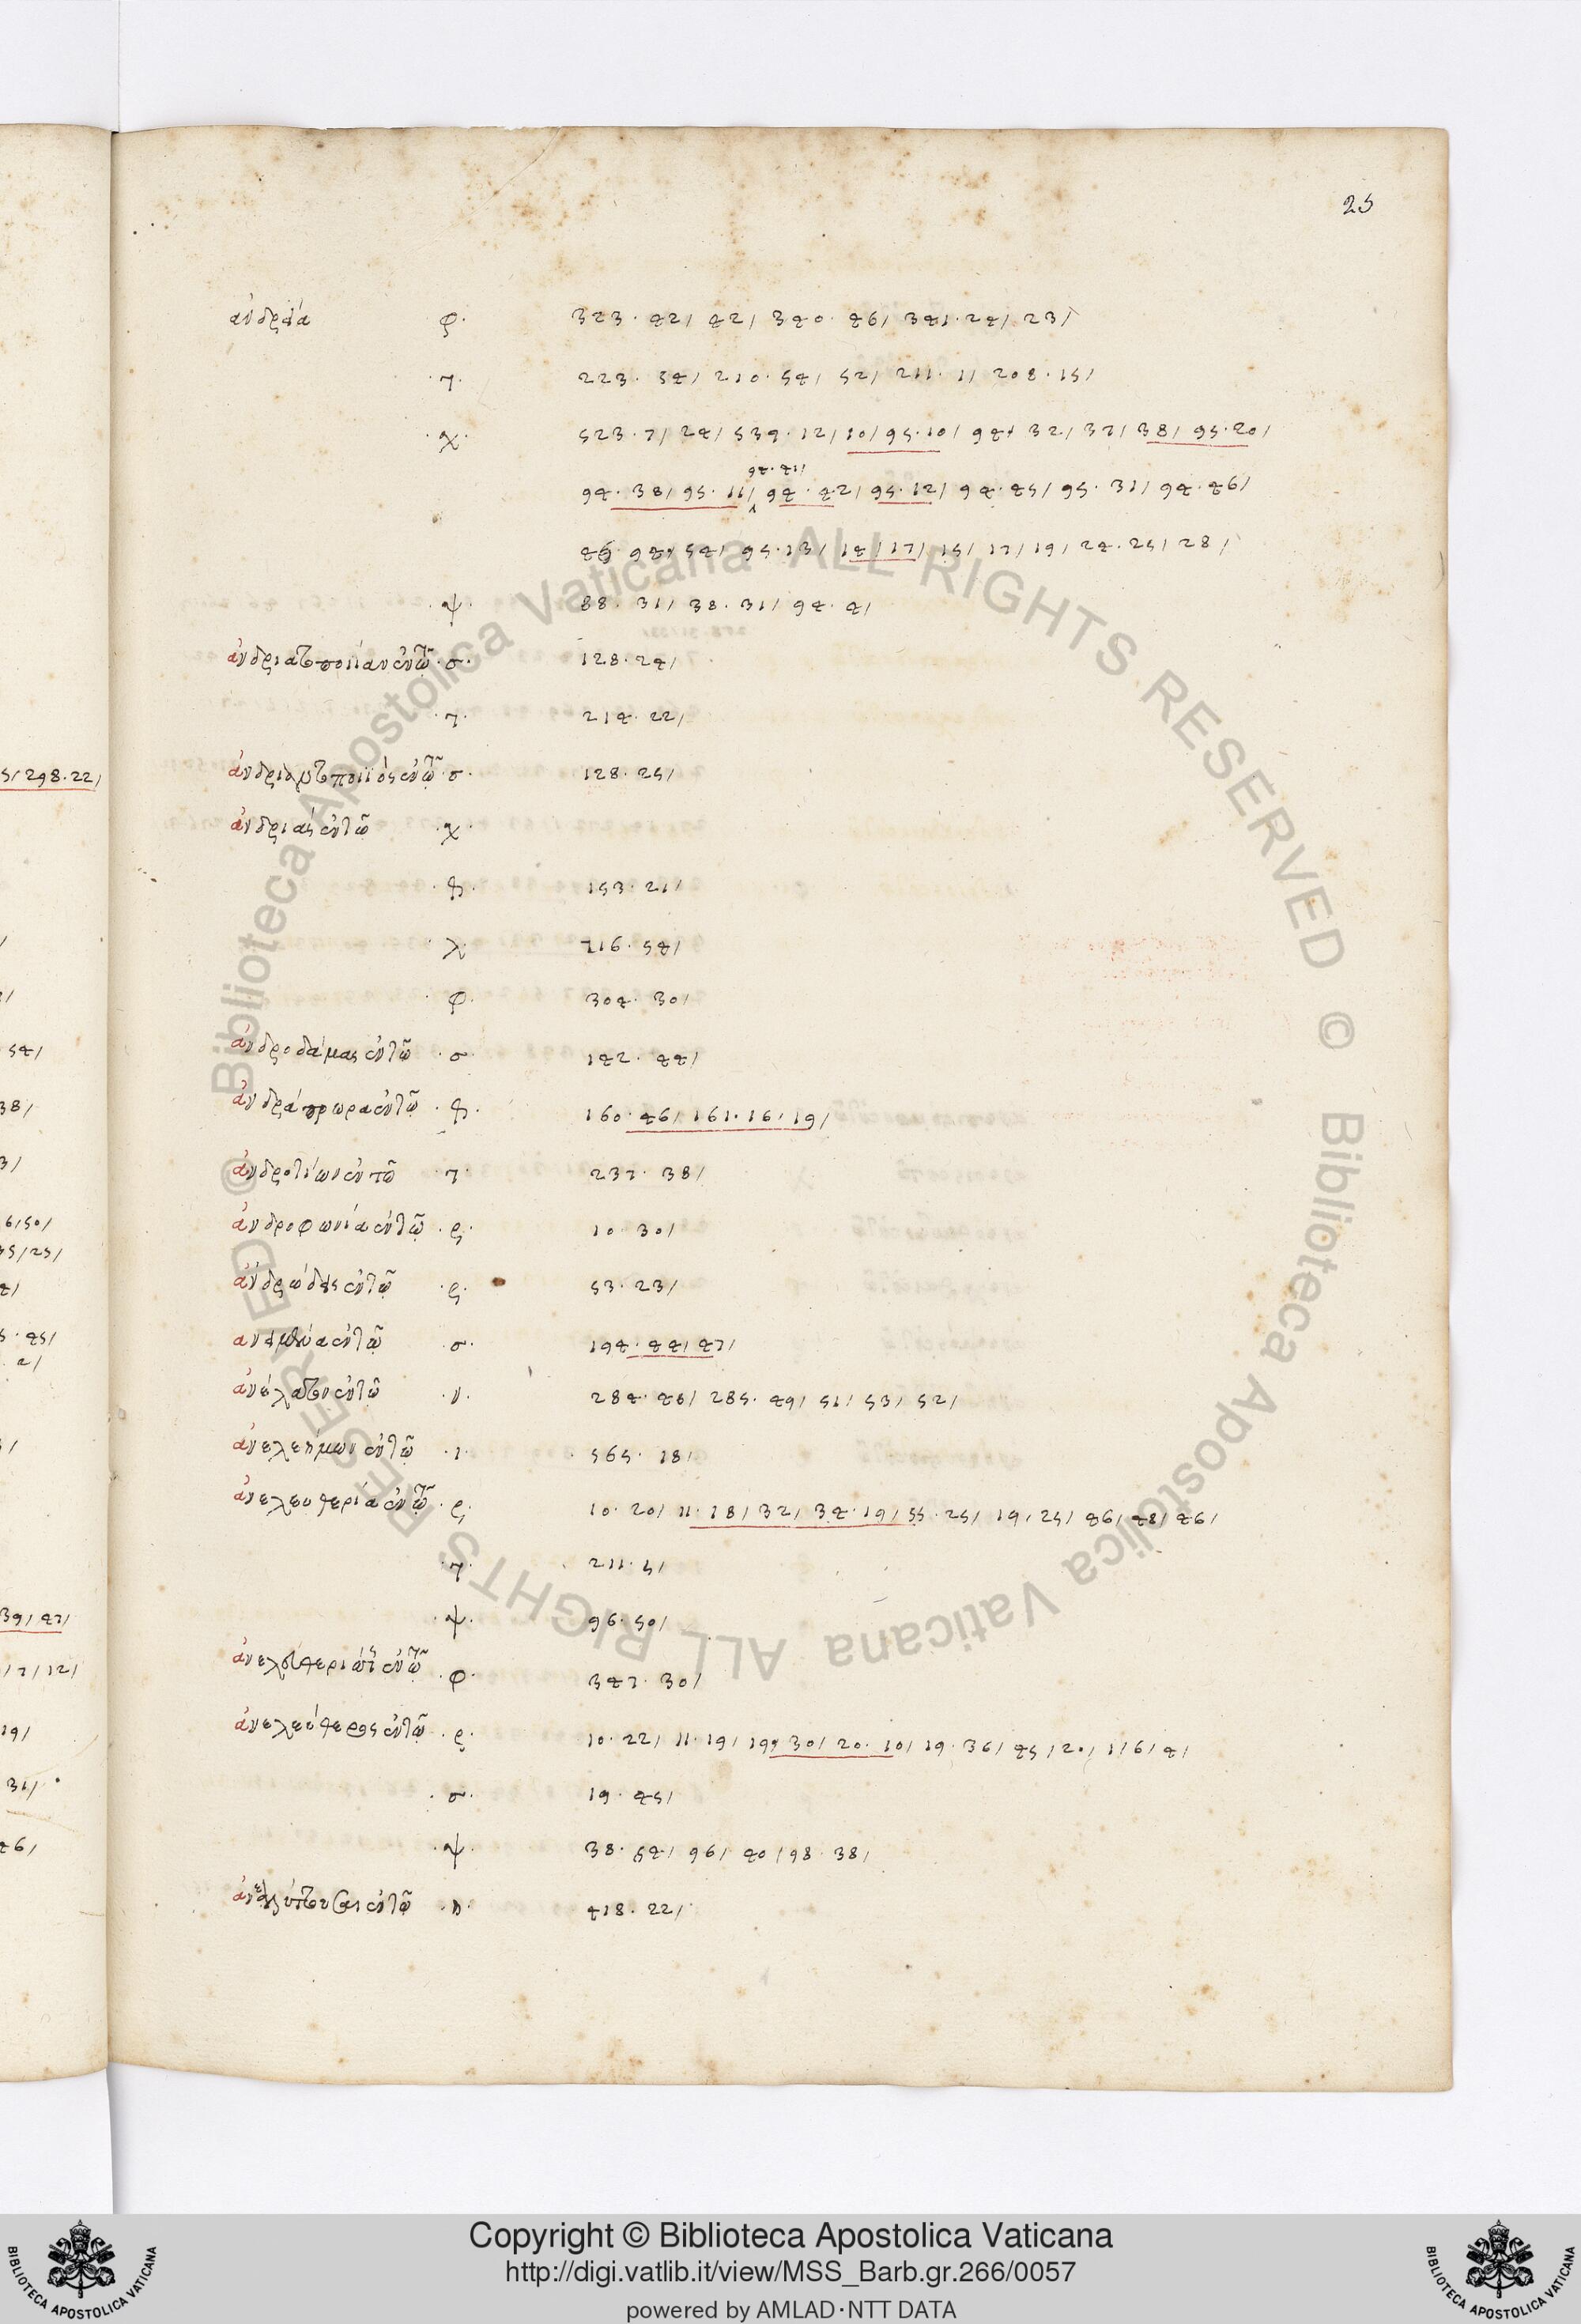 25
ἀνδρεία · φ · 323 · 42 / 42 / 340 · 46 / 341 · 24 / 23 /
· τ · 223 · 54 / 210 · 54 / 52 / 211 · 1 / 208 · 15 /
· χ · 523 · 7 / 24 / 539 · 12 / 10 / 95 · 10 / 94 / 32 / 37 / 38 / 95 · 20 /
94 · 41 /
94 · 38 / 95 · 11 / 94 · 42 / 95 · 12 / 94 · 45 / 95 · 31 / 94 · 46 /
94 / 54 / 95 · 13 / 14 / 17 / 15 / 17 / 19 / 24 · 25 / 28 /
· ψ · 88 · 31 / 38 · 31 / 94 · 4 /
· σ · 128 · 24 /
· τ · 214 · 22 /
5 / 298 · 22 /
· σ · 128 · 25 /
ἀνδριὰς ἐν τῶ · χ ·
153 · 21 /
· λ · 716 · 54 /
· φ · 304 · 30 /
ἀνδροδάμας ἐν τῶ · σ · 142 · 44 /
54 /
ἀνδράπρωρα ἐν τῶ 160 · 46 / 161 · 16 / 19 /
38 /
ἀνδροτίων ἐν τῶ · τ · 237 · 38 /
ἀνδροφωνία ἐν τῶ · ρ · 10 · 30 /
ἀνδρώδης ἐν τῶ · ρ · 53 · 23 /
ἐν τῶ · σ · 194 · 44 / 47 /
ἐν τῶ · ν · 284 · 48 / 285 · 49 / 51 / 53 / 52 /
ἀνελεήμων ἐν τῶ · ι · 565 · 18 /
ἀνελευθερία ἐν τῶ · ρ · 10 · 20 / 11 · 18 / 32 / 34 · 19 / 55 · 25 / 19 / 25 / 46 / 48 / 46 /
· τ · 211 · 5 /
39 / 47 /
· ψ · 96 · 50 /
/ 7 / 12 /
ἐν τῶ · φ · 347 · 30 /
19 /
ἀνελεύθερος ἐν τῶ · ρ · 10 · 22 / 11 · 19 / 19 / 30 / 20 · 10 / 19 · 36 / 45 / 20 / 1 / 6 / 4 /
31 /
· σ · 19 · 45 /
46 /
· ψ · 38 · 54 / 96 / 40 / 98 · 38 /
ἐν τῶ · η · 418 · 22 /
© Biblioteca Apostolica Vaticana ALL RIGHTS RESERVED © Biblioteca Apostolica Vaticana ALL RIGHTS RESERVED
BIBLIOTECA APOSTOLICA VATICANA
Copyright © Biblioteca Apostolica Vaticana
http://digi.vatlib.it/view/MSS_Barb.gr.266/0057
powered by AMLAD·NTT DATA
BIBLIOTECA APOSTOLICA VATICANA